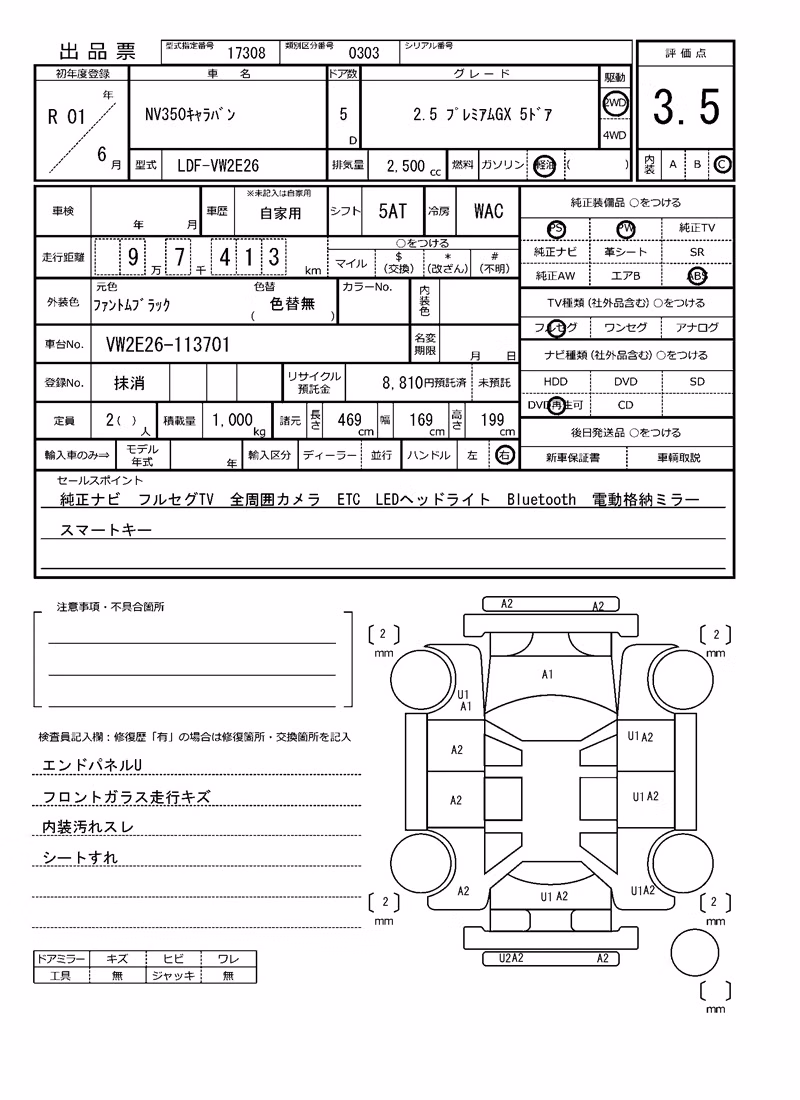 出品票 型式指定番号 17308 類別区分番号 0303 シリアル番号
評価点
3.5
内装 A B C
初年度登録 車名 ドア数 グレード 駆動
R 01 年 6 月 NV350ｷｬﾗﾊﾞﾝ 5 D 2.5 ﾌﾟﾚﾐｱﾑGX 5ﾄﾞｱ 2WD
4WD
型式 LDF-VW2E26 排気量 2,500 cc 燃料 ガソリン 軽油 ( )
車検 年 月 車歴 ※未記入は自家用
自家用 シフト 5AT 冷房 WAC
走行距離 9 万 7 千 4 1 3 km ○をつける
マイル $ (交換) * (改ざん) # (不明)
外装色 元色 ﾌｧﾝﾄﾑﾌﾞﾗｯｸ 色替 ( 色替無 ) カラーNo. 内装色
車台No. VW2E26-113701 名変期限 月 日
登録No. 抹消 リサイクル預託金 8,810円預託済 未預託
定員 2( ) 人 積載量 1,000 kg 諸元 長さ 469 cm 幅 169 cm 高さ 199 cm
輸入車のみ⇒ モデル年式 年 輸入区分 ディーラー 並行 ハンドル 左 右
純正装備品 ○をつける
PS PW 純正TV
純正ナビ 革シート SR
純正AW エアB ABS
TV種類(社外品含む)○をつける
フルセグ ワンセグ アナログ
ナビ種類(社外品含む)○をつける
HDD DVD SD
DVD再生可 CD
後日発送品 ○をつける
新車保証書 車輌取説
セールスポイント
純正ナビ フルセグTV 全周囲カメラ ETC LEDヘッドライト Bluetooth 電動格納ミラー
スマートキー
注意事項・不具合箇所
検査員記入欄：修復歴「有」の場合は修復箇所・交換箇所を記入
エンドパネルU
フロントガラス走行キズ
内装汚れスレ
シートすれ
ドアミラー キズ ヒビ ワレ
工具 無 ジャッキ 無
A2 A2
[ 2 ] mm [ 2 ] mm
A1
U1
A1
A2 U1 A2
A2 U1 A2
A2 U1 A2 U1A2
[ 2 ] mm [ 2 ] mm
U2A2 A2
[ ] mm